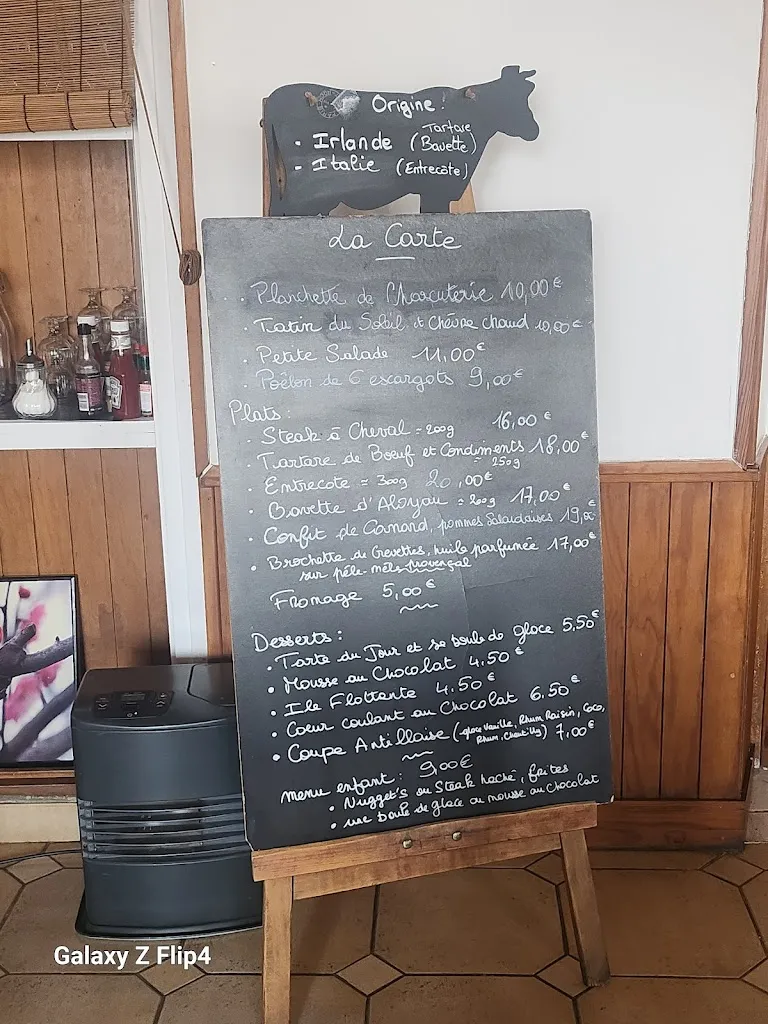 Origine :
- Irlande (Tartare
Bavette)
- Italie (Entrecôte)
La Carte
. Planchette de Charcuterie 10,00€
. Tatin du Soleil et Chèvre chaud 10,00€
. Petite Salade 11,00€
. Poêlon de 6 escargots 9,00€
Plats :
. Steak à Cheval = 200g 16,00€
. Tartare de Bœuf et Condiments 18,00€
= 250g
. Entrecote = 300g 20,00€
. Bavette d'Aloyau = 200g 17,00€
. Confit de Canard, pommes Salardaises 19,00
. Brochette de Crevettes, huile parfumée 17,00€
sur pêle-mêle provençal
Fromage 5,00€
Desserts :
. Tarte du Jour et sa boule de glace 5,50€
. Mousse au Chocolat 4.50€
. Ile Flottante 4.50€
. Coeur coulant au Chocolat 6.50€
. Coupe Antillaise (glace Vanille, Rhum Raisin, Coco,
Rhum, Chantilly) 7,00€
menu enfant : 9,00€
. Nugget's ou Steak haché, frites
. une boule de glace ou mousse au chocolat
Galaxy Z Flip4